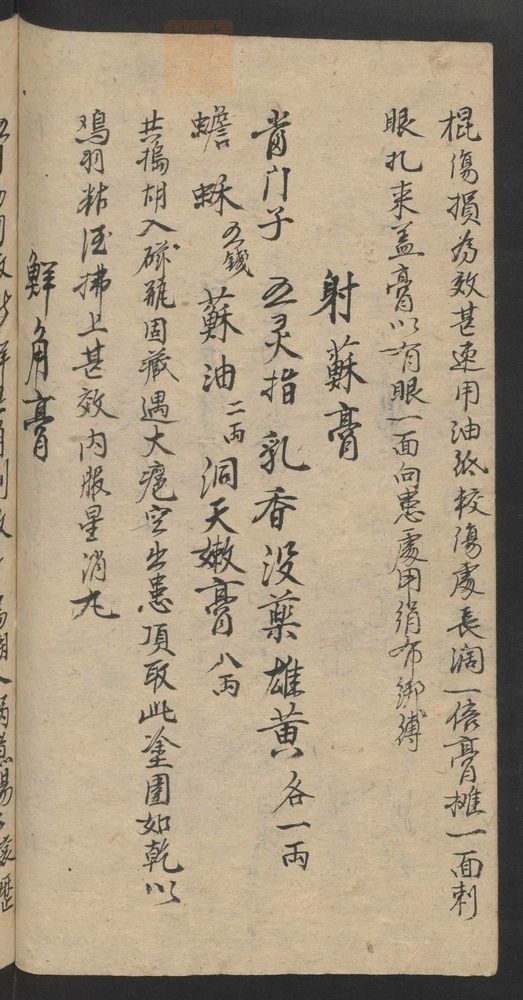 棍傷損為效甚速用油紙較傷處長濶一倍膏攤一面刺
眼扎來盖膏以有眼一面向患處用絹布綁縛
射蘇膏
當门子 五灵指 乳香没藥雄黄各一両
蟾穌五錢 蘇油二両 洞天嫩膏八両
共搗胡入磁瓶固藏遇大瘡空出患頂取此塗圍如乾以
鳮羽粘酒拂上甚效内服星消丸
鮮角膏